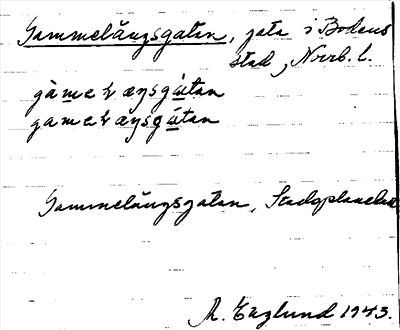 Gammelängsgatan, gata i Bodens
stad, Norrb. l.
gàmeɫæŋsgátan
gameɫæŋsgátan
Gammelängsgatan, Stadsplanekar
M. Englund 1943.